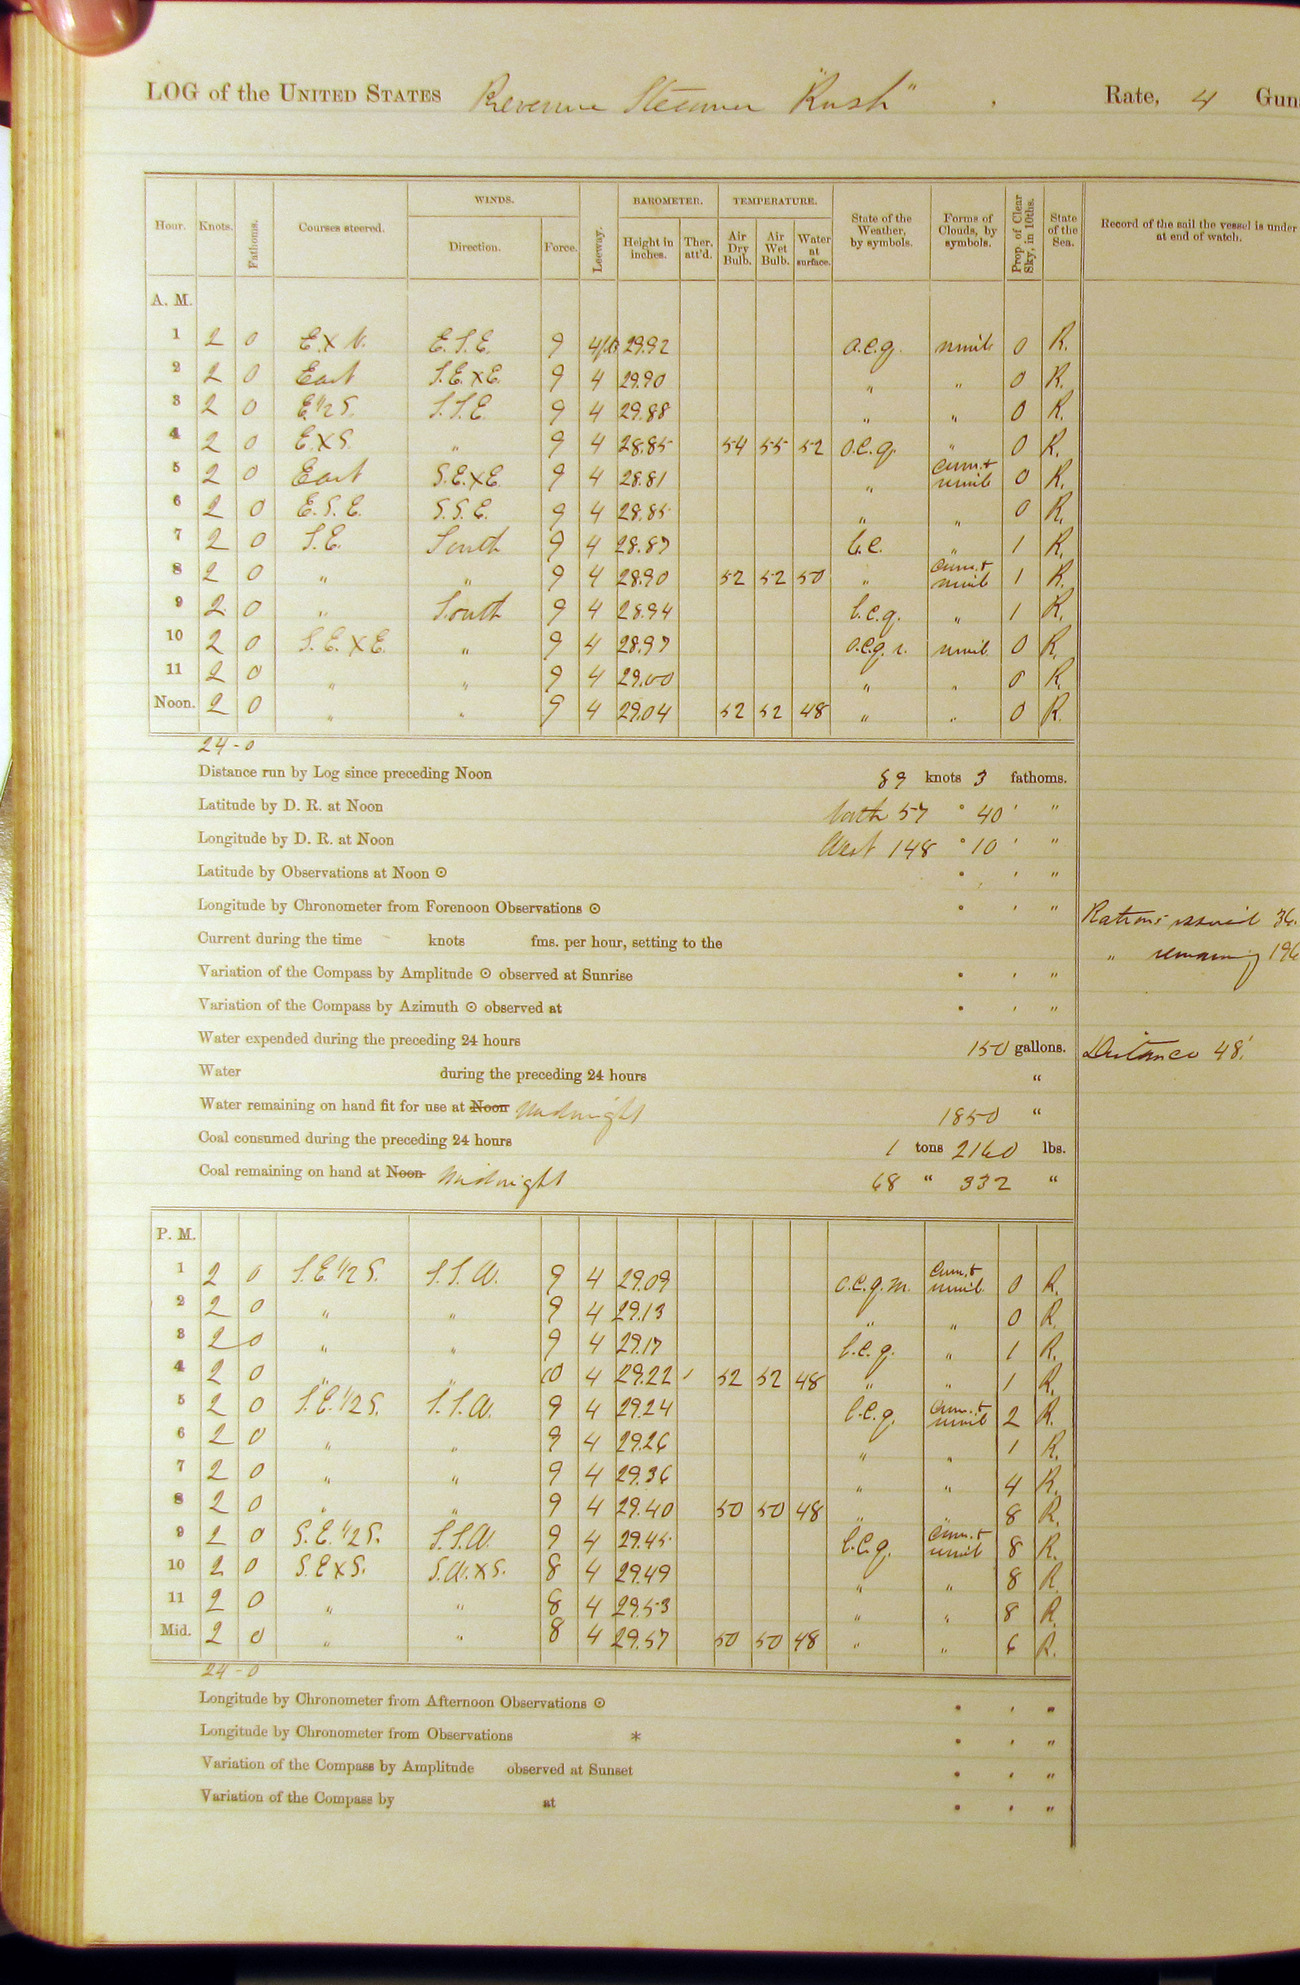 LOG of the UNITED STATES Revenue Steamer "Rush", Rate, 4 Gun
Hour. Knots. Fathoms. Courses steered. WINDS. Direction. Force. Leeway. BAROMETER. Height in inches. Ther. att'd. TEMPERATURE. Air Dry Bulb. Air Wet Bulb. Water at surface. State of the Weather, by symbols. Forms of Clouds, by symbols. Prop. of Clear Sky, in 10ths. State of the Sea. Record of the sail the vessel is under at end of watch.
A. M.
1 2 0 E.x N. E.S.E. 9 29.92 o.c.q. nimb 0 R.
2 2 0 East S.E.xE. 9 4 29.90 " " 0 R.
3 2 0 E.½S. S.S.E. 9 4 29.88 " " 0 R.
4 2 0 E.xS. " 9 4 28.85 54 55 52 o.c.q. " 0 R.
5 2 0 East S.E.xE. 9 4 28.81 " Cum.+ nimb 0 R.
6 2 0 E.S.E. S.S.E. 9 4 28.85 " " 0 R.
7 2 0 S.E. South 9 4 28.87 b.c. " 1 R.
8 2 0 " " 9 4 28.90 52 52 50 " Cum.+ nimb 1 R.
9 2 0 " South 9 4 28.94 b.c.q. " 1 R.
10 2 0 S.E.xE. " 9 4 28.97 o.c.q.r. nimb 0 R.
11 2 0 " " 9 4 29.00 " " 0 R.
Noon. 2 0 " " 9 4 29.04 52 52 48 " " 0 R.
24-0
Distance run by Log since preceding Noon 89 knots 3 fathoms.
Latitude by D. R. at Noon North 57 ° 40 ' "
Longitude by D. R. at Noon West 148 ° 10 ' "
Latitude by Observations at Noon ⊙ ° ' "
Longitude by Chronometer from Forenoon Observations ⊙ ° ' " Rations issued 36.
Current during the time knots fms. per hour, setting to the " remaining 196
Variation of the Compass by Amplitude ⊙ observed at Sunrise ° ' "
Variation of the Compass by Azimuth ⊙ observed at ° ' "
Water expended during the preceding 24 hours 150 gallons. Distance 48'.
Water during the preceding 24 hours "
Water remaining on hand fit for use at Noon Midnight 1850 "
Coal consumed during the preceding 24 hours 1 tons 2160 lbs.
Coal remaining on hand at Noon Midnight 68 " 332 "
P. M.
1 2 0 S.E.½S. S.S.W. 9 4 29.09 o.c.q.m. Cum.+ nimb 0 R.
2 2 0 " " 9 4 29.13 " " 0 R.
3 2 0 " " 9 4 29.17 b.c.q. " 1 R.
4 2 0 " " 10 4 29.22 52 52 48 " " 1 R.
5 2 0 S.E.½S. S.S.W. 9 4 29.24 b.c.q. Cum.+ nimb 2 R.
6 2 0 " " 9 4 29.26 " " 1 R.
7 2 0 " " 9 4 29.36 " " 4 R.
8 2 0 " " 9 4 29.40 50 50 48 " " 8 R.
9 2 0 S.E.½S. S.S.W. 9 4 29.45 b.c.q. Cum.+ nimb 8 R.
10 2 0 S.ExS. S.W.xS. 8 4 29.49 " " 8 R.
11 2 0 " " 8 4 29.53 " " 8 R.
Mid. 2 0 " " 8 4 29.57 50 50 48 " " 6 R.
24-0
Longitude by Chronometer from Afternoon Observations ⊙ ° ' "
Longitude by Chronometer from Observations * ° ' "
Variation of the Compass by Amplitude observed at Sunset ° ' "
Variation of the Compass by at ° ' "